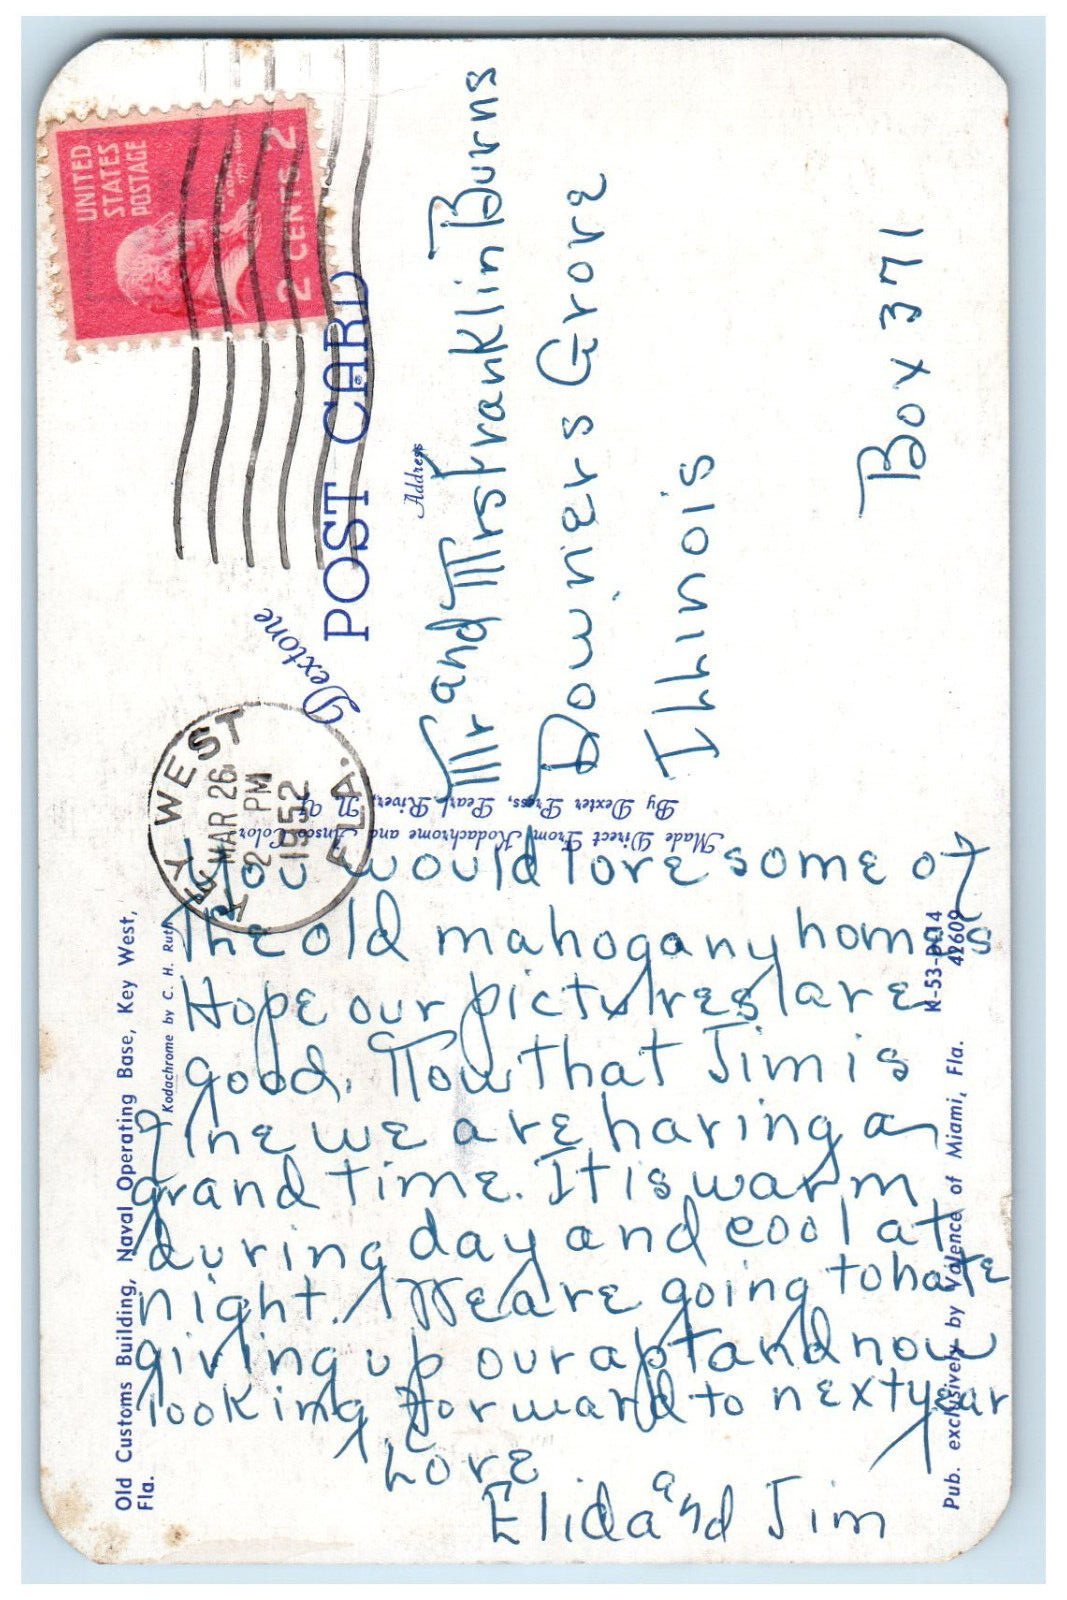 Old Customs Building, Naval Operating Base, Key West,
Fla.
Kodachrome by C. H. Ruth
UNITED
STATES
POSTAGE
2 CENTS 2
KEY WEST
MAR 26
2 PM
1952
FLA.
Dextone
POST CARD
Address
Made Direct From Kodachrome and Ansco Color
By Dexter Press, Pearl River, N. Y.
Mr and Mrs Franklin Burns
Downers Grove
Illinois
Box 371
You would love some of
the old mahogany homes
Hope our pictures are
good. Now that Jim is
fine we are having a
grand time. It is warm
during day and cool at
night. We are going to hate
giving up our apt and now
looking forward to next year
Love
Elida and Jim
K-53-D-14
42609
Pub. exclusively by Valence of Miami, Fla.